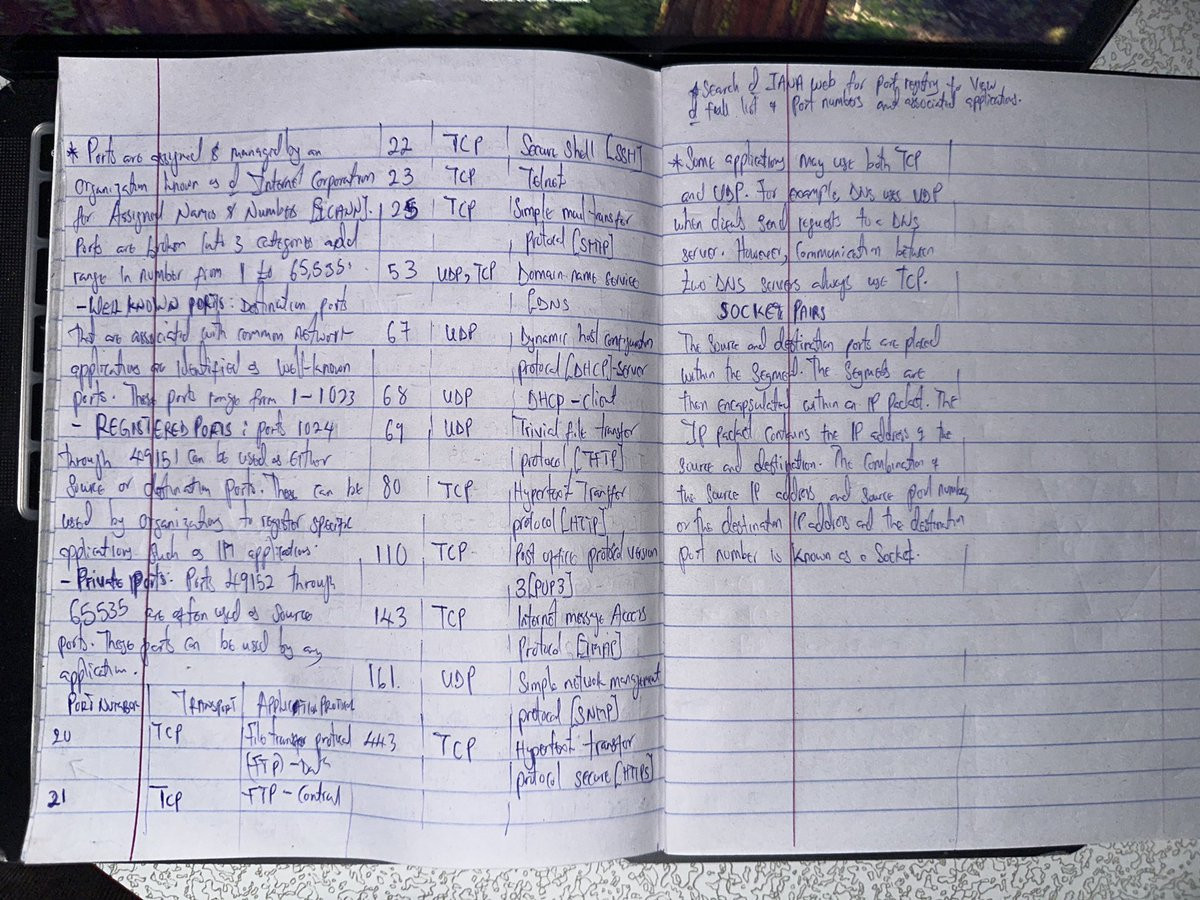 * Ports are assigned & managed by an
Organization known as d Internet Corporation
for Assigned Names & Numbers [ICANN].
Ports are broken into 3 categories and
range in number from 1 to 65,535.
- WELL KNOWN PORTS: Destination ports
that are associated with common network
applications are identified as well-known
ports. These ports range from 1-1023
- REGISTERED PORTS: ports 1024
through 49151 can be used as either
Source or destination Ports. These can be
used by organizations to register specific
applications such as IM applications.
- Private ports: Ports 49152 through
65535 are often used as source
ports. These ports can be used by any
application.
PORT NUMBER TRANSPORT APPLICATION PROTOCOL
20 TCP File transfer protocol
(FTP) - Data
21 TCP FTP - Control
22 TCP Secure Shell [SSH]
23 TCP Telnet
25 TCP Simple mail transfer
protocol [SMTP]
53 UDP, TCP Domain name service
[DNS
67 UDP Dynamic host configuration
protocol [DHCP]-server
68 UDP DHCP - client
69 UDP Trivial file transfer
protocol [TFTP]
80 TCP Hypertext Transfer
protocol [HTTP]
110 TCP Post office protocol version
3[POP3]
143 TCP Internet message Access
Protocol [IMAP]
161. UDP Simple network management
protocol [SNMP]
443 TCP Hypertext transfer
protocol secure [HTTPS]
* Search d IANA web for port registry to view
d full list of Port numbers and associated applications.
* Some applications may use both TCP
and UDP. For example, DNS uses UDP
when clients send requests to a DNS
server. However, Communication between
two DNS servers always use TCP.
SOCKET PAIRS
The source and destination ports are placed
within the segment. The segments are
then encapsulated within an IP packet. The
IP packet contains the IP address of the
source and destination. The combination of
the source IP address and source port number,
or the destination IP address and the destination
port number is known as a Socket.